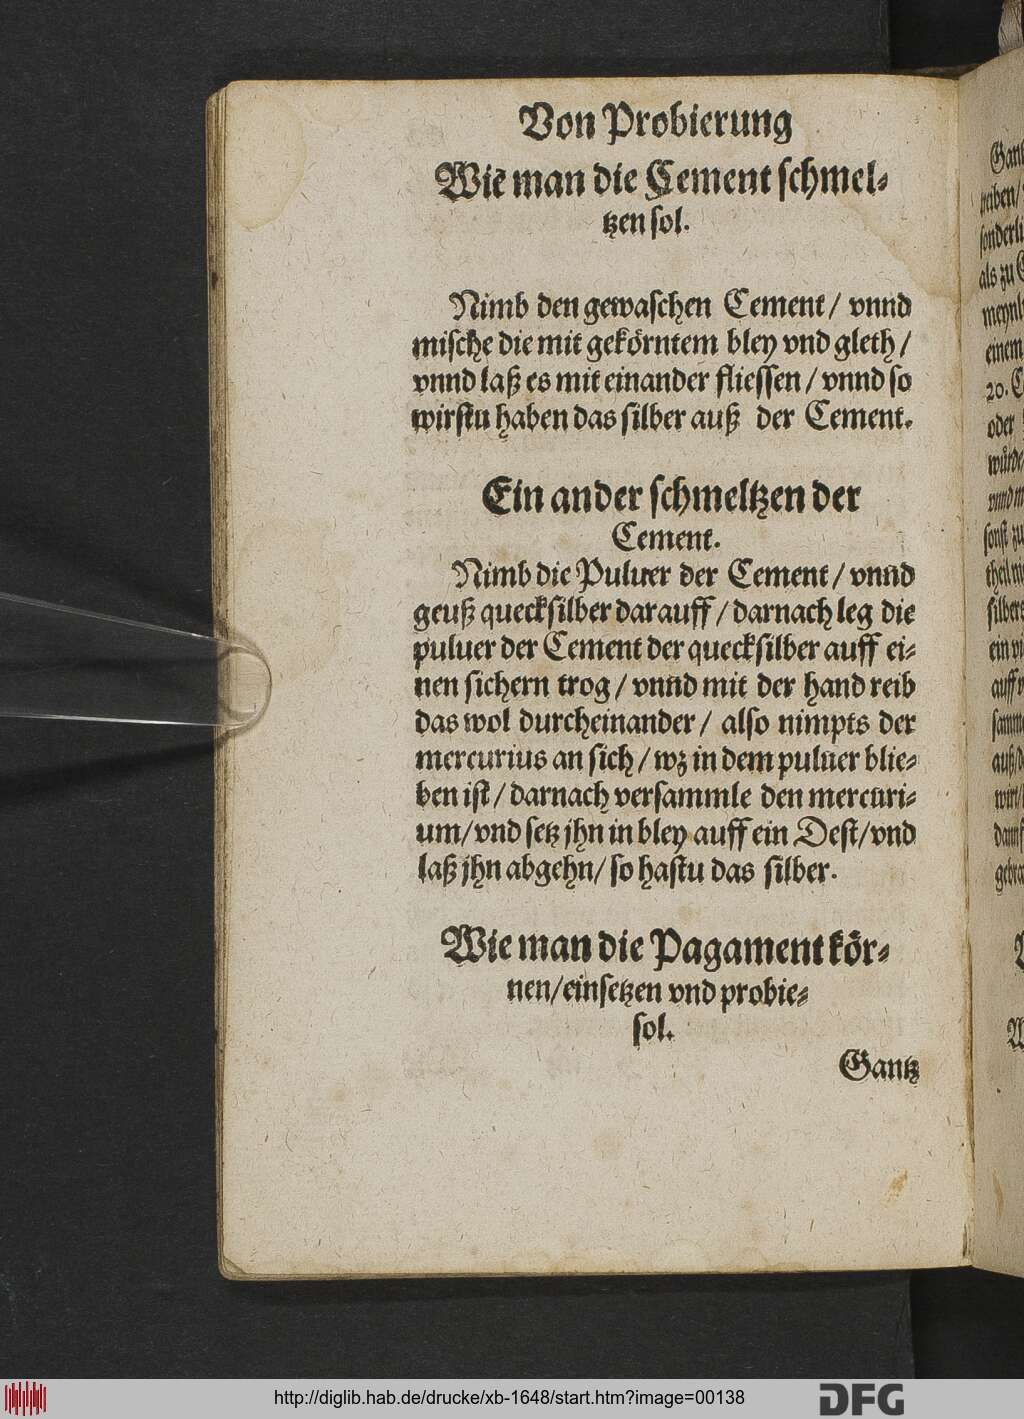 Von Probierung
Wie man die Cement schmel⸗
tzen sol.
Nimb den gewaschen Cement / vnnd
mische die mit gekörntem bley vnd gleth /
vnnd laß es mit einander fliessen / vnnd so
wirstu haben das silber auß der Cement.
Ein ander schmeltzen der
Cement.
Nimb die Puluer der Cement / vnnd
geuß quecksilber darauff / darnach leg die
puluer der Cement der quecksilber auff ei⸗
nen sichern trog / vnnd mit der hand reib
das wol durcheinander / also nimpts der
mercurius an sich / wz in dem puluer blie⸗
ben ist / darnach versammle den mercuri⸗
um / vnd setz jhn in bley auff ein Dest / vnd
laß jhn abgehn / so hastu das silber.
Wie man die Pagament kör⸗
nen / einsetzen vnd probie⸗
sol.
Gantz
sonderli
als zu
einem
20. C
oder
http://diglib.hab.de/drucke/xb-1648/start.htm?image=00138
DFG